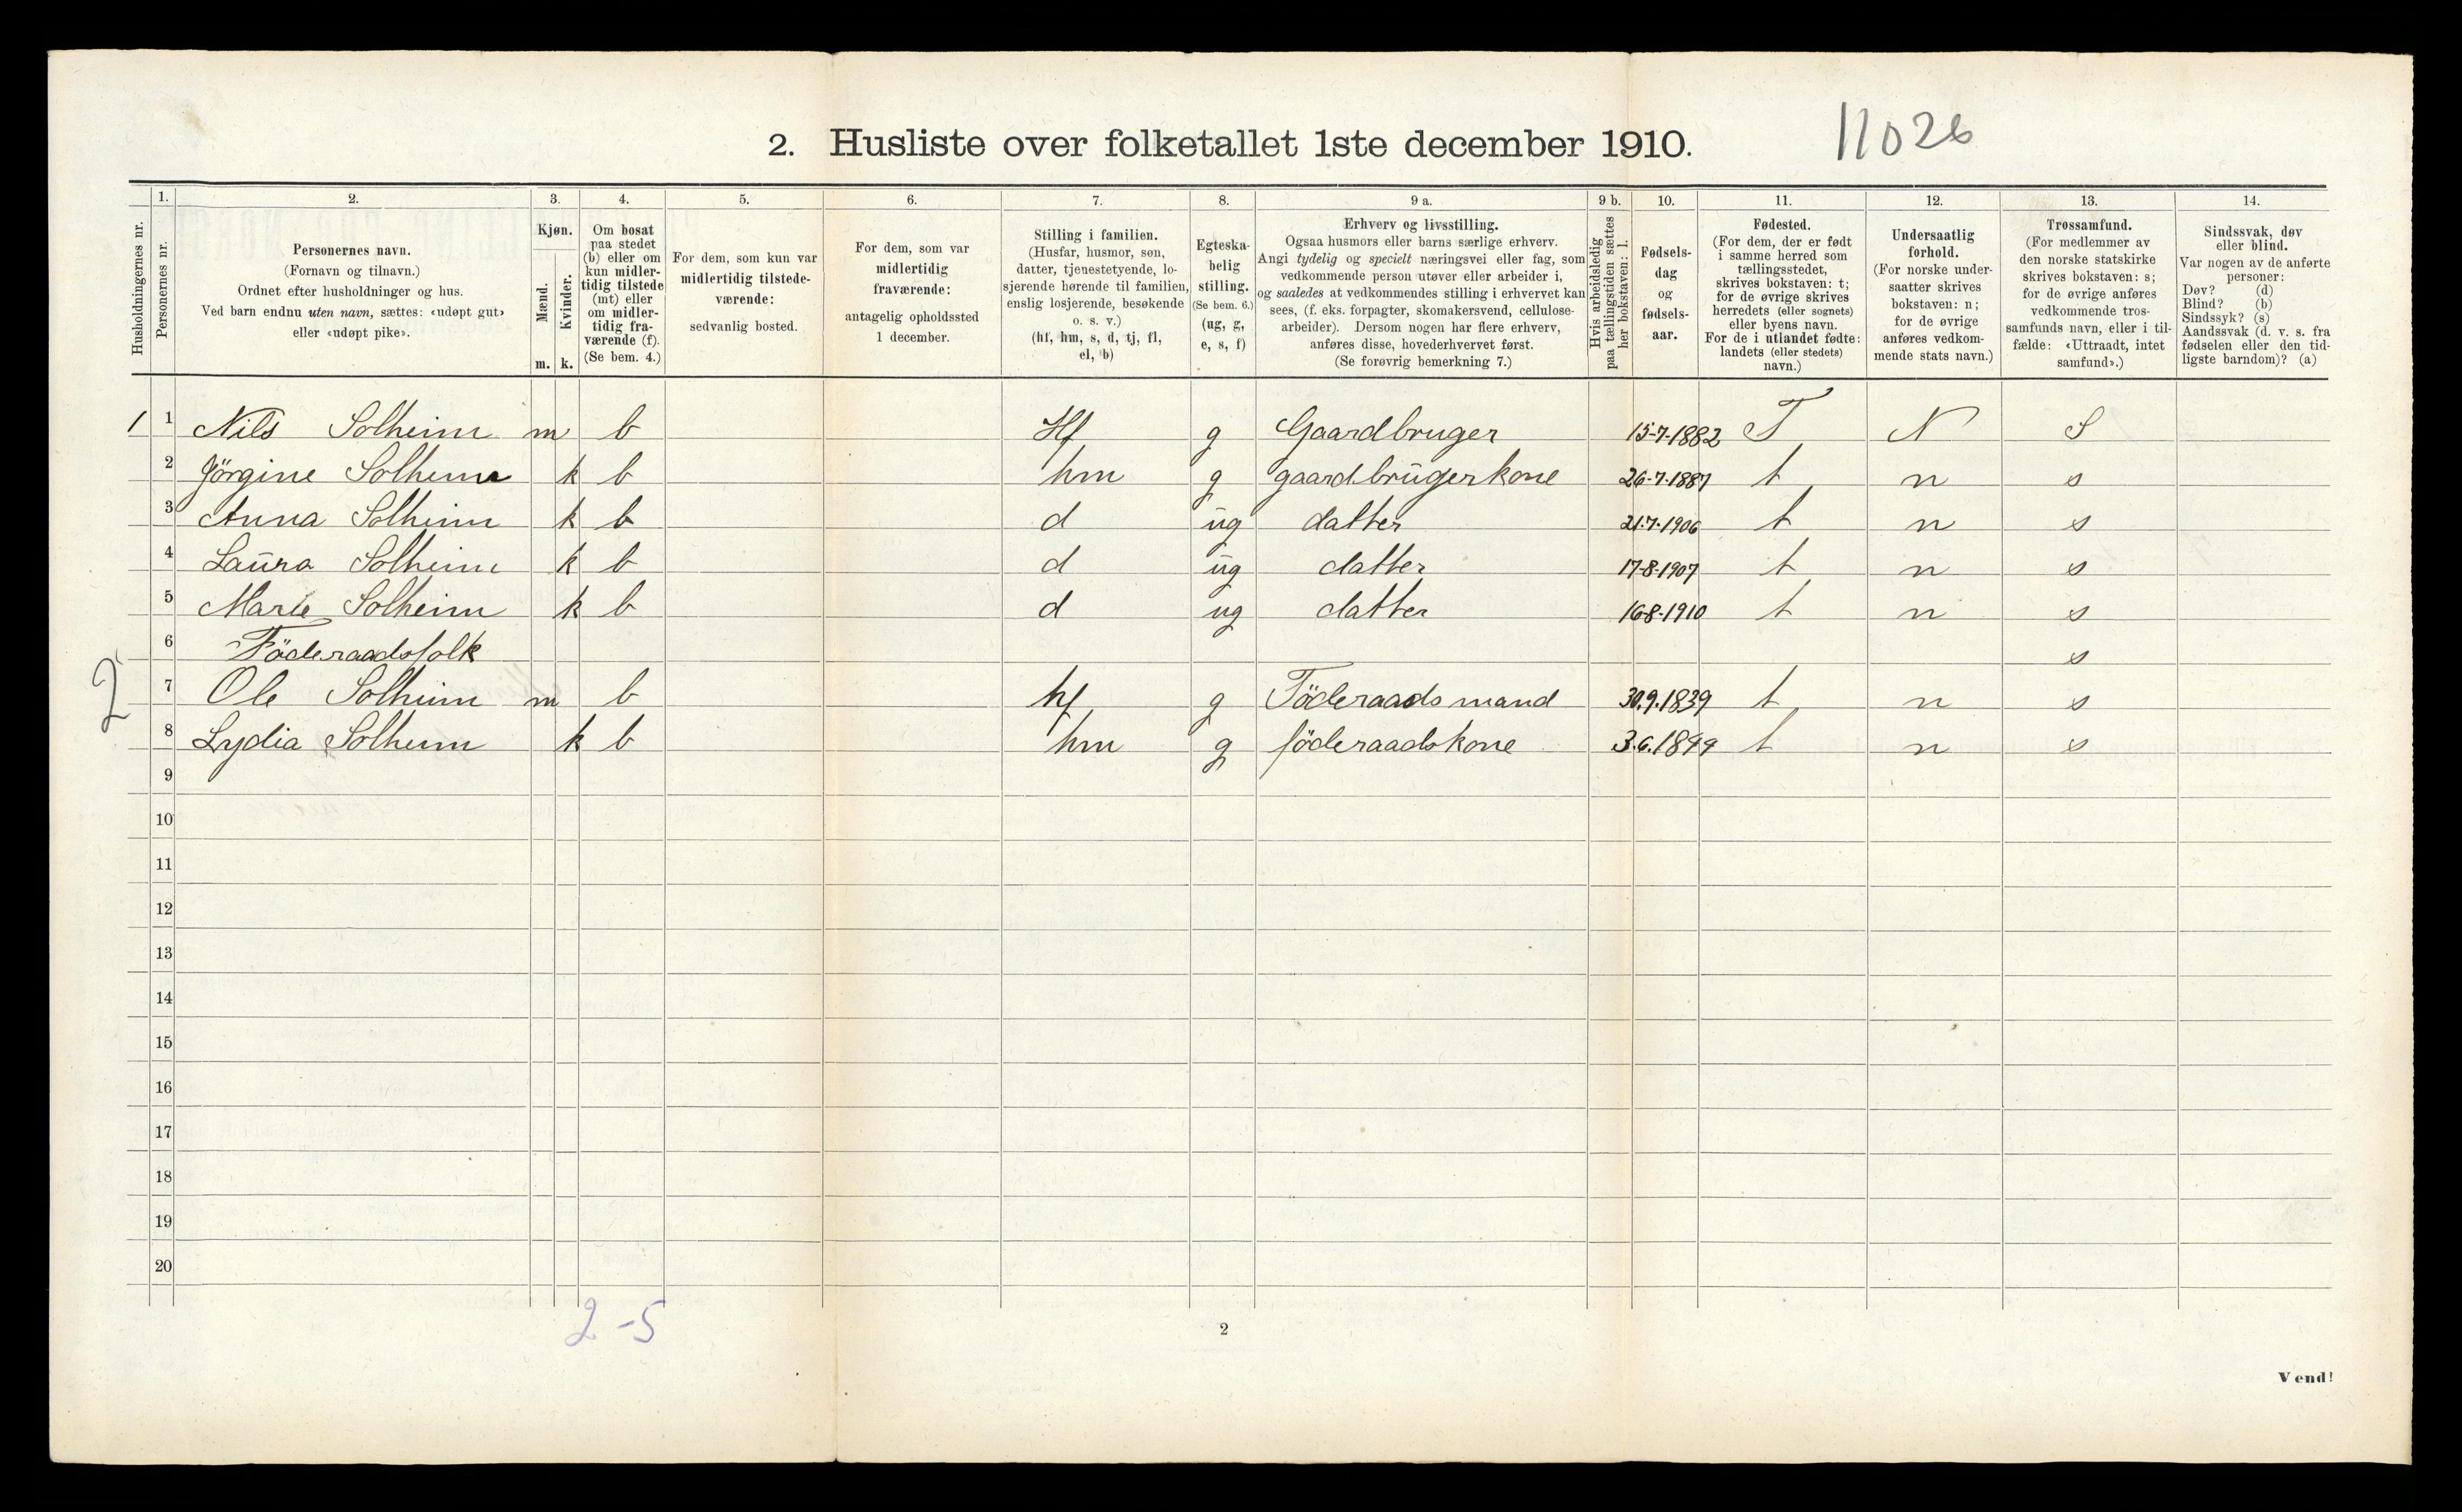 2. Husliste over folketallet 1ste december 1910.
11026
Husholdningernes nr.
1.
Personernes nr.
2.
Personernes navn.
(Fornavn og tilnavn.)
Ordnet efter husholdninger og hus.
Ved barn endnu uten navn, sættes: «udøpt gut»
eller «udøpt pike».
3.
Kjøn.
Mænd.
Kvinder.
m. k.
4.
Om bosat
paa stedet
(b) eller om
kun midler-
tidig tilstede
(mt) eller
om midler-
tidig fra-
værende (f).
(Se bem. 4.)
5.
For dem, som kun var
midlertidig tilstede-
værende:
sedvanlig bosted.
6.
For dem, som var
midlertidig
fraværende:
antagelig opholdssted
1 december.
7.
Stilling i familien.
(Husfar, husmor, søn,
datter, tjenestetyende, lo-
sjerende hørende til familien,
enslig losjerende, besøkende
o. s. v.)
(hf, hm, s, d, tj, fl,
el, b)
8.
Egteska-
belig
stilling.
(Se bem. 6.)
(ug, g,
e, s, f)
9 a.
Erhverv og livsstilling.
Ogsaa husmors eller barns særlige erhverv.
Angi tydelig og specielt næringsvei eller fag, som
vedkommende person utøver eller arbeider i,
og saaledes at vedkommendes stilling i erhvervet kan
sees, (f. eks. forpagter, skomakersvend, cellulose-
arbeider). Dersom nogen har flere erhverv,
anføres disse, hovederhvervet først.
(Se forøvrig bemerkning 7.)
9 b.
Hvis arbeidsledig
paa tællingstiden sættes
her bokstaven: l.
10.
Fødsels-
dag
og
fødsels-
aar.
11.
Fødested.
(For dem, der er født
i samme herred som
tællingsstedet,
skrives bokstaven: t;
for de øvrige skrives
herredets (eller sognets)
eller byens navn.
For de i utlandet fødte:
landets (eller stedets)
navn.)
12.
Undersaatlig
forhold.
(For norske under-
saatter skrives
bokstaven: n;
for de øvrige
anføres vedkom-
mende stats navn.)
13.
Trossamfund.
(For medlemmer av
den norske statskirke
skrives bokstaven: s;
for de øvrige anføres
vedkommende tros-
samfunds navn, eller i til-
fælde: «Uttraadt, intet
samfund».)
14.
Sindssvak, døv
eller blind.
Var nogen av de anførte
personer:
Døv? (d)
Blind? (b)
Sindssyk? (s)
Aandssvak (d. v. s. fra
fødselen eller den tid-
ligste barndom)? (a)
1 1 Nils Solheim m b Hf g Gaardbruger 15-7-1882 T N S
2 Jörgine Solheim k b hm g gaardbrugerkone 26-7-1887 t n s
3 Anna Solheim k b d ug datter 21.7.1906 t n s
4 Laura Solheim k b d ug datter 17-8-1907 t n s
5 Marie Solheim k b d ug datter 16-8-1910 t n s
6 Föderaadsfolk s
2 7 Ole Solheim m b hf g Föderaadsmand 30.9.1839 t n s
8 Lydia Solheim k b hm g föderaadskone 3.6.1899 t n s
9
10
11
12
13
14
15
16
17
18
19
20
2-5
2
Vend!